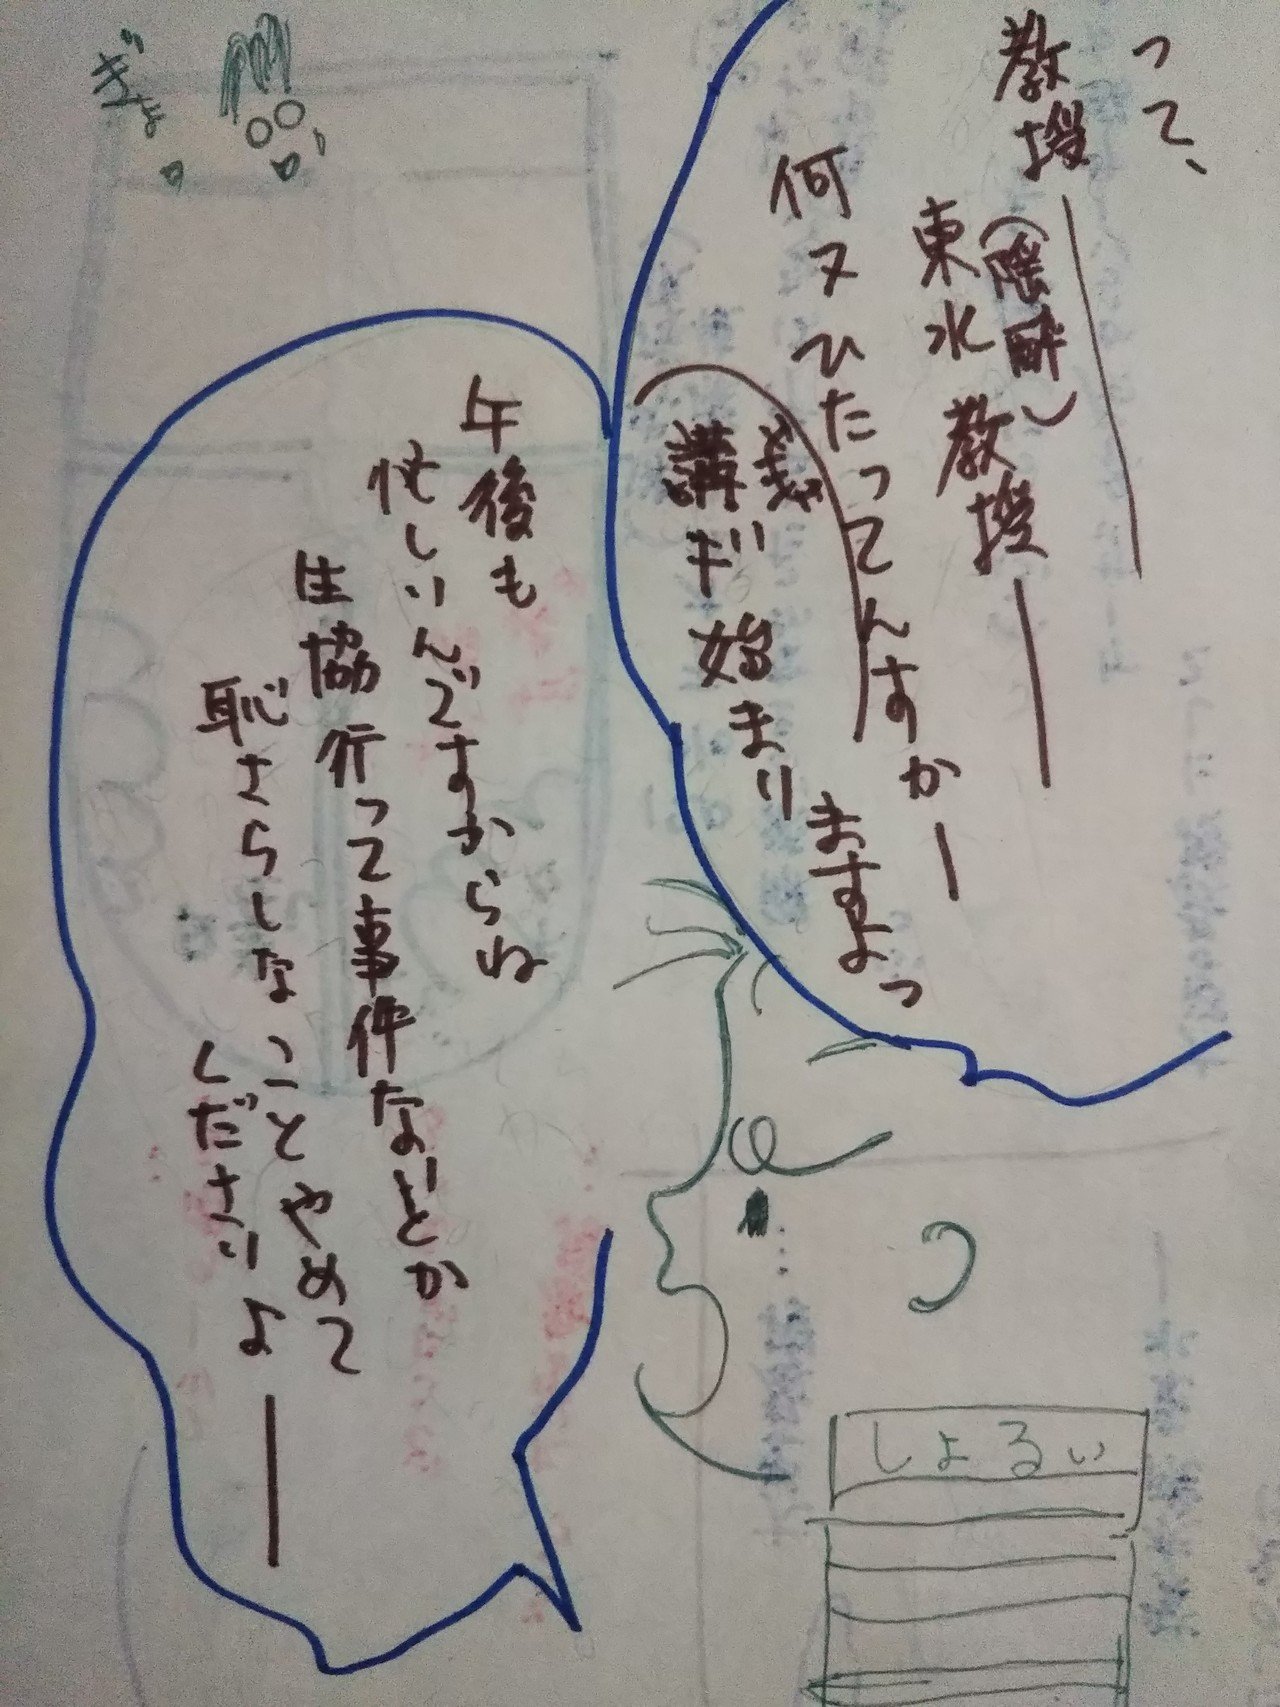 って、
教授――
(陰酔)
東水教授――
何ヌひたってんすかー
講ギ始まり
ますよっ
午後も
忙しいんですからね
生協行って事件などとか
恥さらしなことやめて
くださいよ――
ぎょ
しょるい